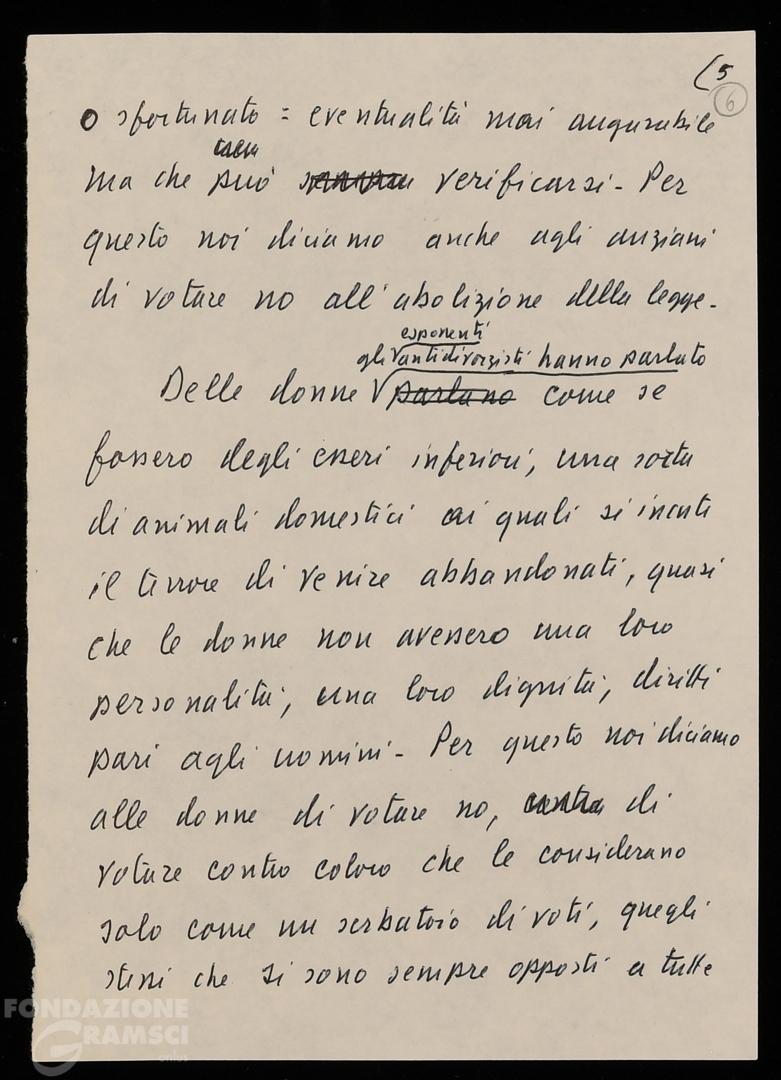 (5
6
o sfortunato = eventualità mai augurabile
ma che può verificarsi - Per
questo noi diciamo anche agli anziani
di votare no all'abolizione della legge -
esponenti
gli antidivorzisti hanno parlato
Delle donne parlano come se
fossero degli esseri inferiori, una sorta
di animali domestici ai quali si incuti
il terrore di venire abbandonati, quasi
che le donne non avessero una loro
personalità, una loro dignità, diritti
pari agli uomini - Per questo noi diciamo
alle donne di votare no, contro di
votare contro coloro che le considerano
solo come un serbatoio di voti, quegli
stessi che si sono sempre opposti a tutte
FONDAZIONE
GRAMSCI
onlus